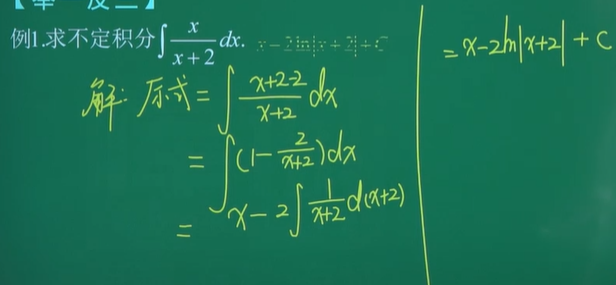 【举一反三】
例1.求不定积分∫ x/(x+2) dx. x−2ln|x+2|+C
解: 原式 = ∫ (x+2-2)/(x+2) dx
= ∫ (1 − 2/(x+2)) dx
= x − 2 ∫ 1/(x+2) d(x+2)
= x−2ln|x+2| + C